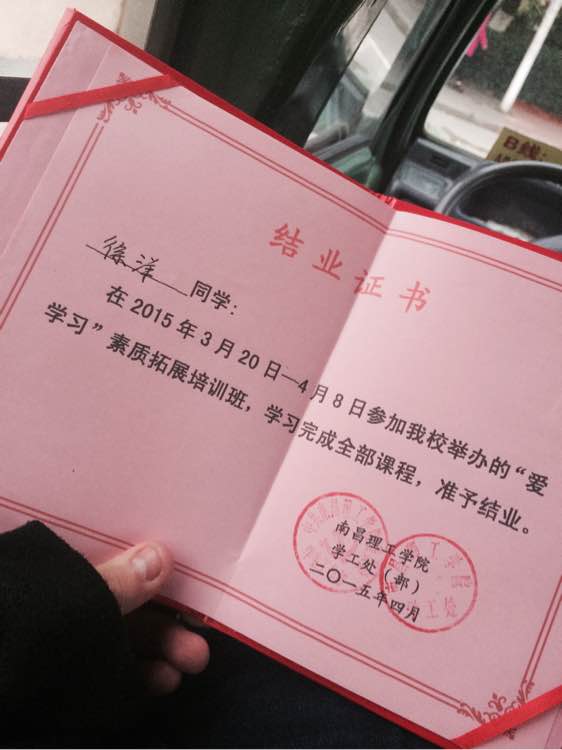 结业证书
徐洋 同学:
在2015年3月20日—4月8日参加我校举办的“爱
学习”素质拓展培训班，学习完成全部课程，准予结业。
南昌理工学院
学工处（部）
二〇一五年四月
B线: